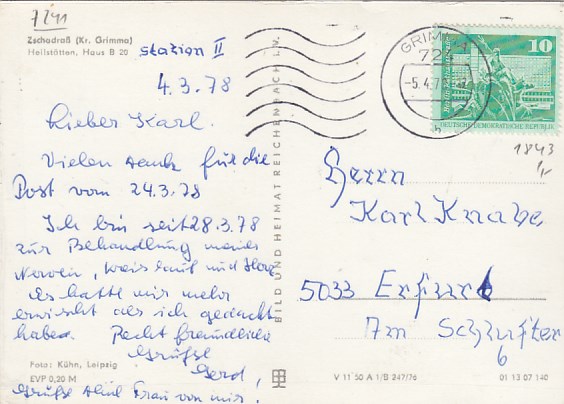 7241
Zschadraß (Kr. Grimma)
Heilstätten, Haus B 20
Station II
4.3.78
Lieber Karl.
Vielen Dank für die
Post vom 24.3.78
Ich bin seit 28.3.78
zur Behandlung meines
Nerven, Kreislauf und Herz
Es hatte mir mehr
erwischt als ich gedacht
habe. Recht freundliche
Grüße
Gerd,
Grüße deine Frau von mir!
Foto: Kühn, Leipzig
EVP 0,20 M
BILD UND HEIMAT REICHENBACH i. V.
GRIMMA
72
-5.4.7
10
DEUTSCHE DEMOKRATISCHE REPUBLIK
1843
Herrn
Karl Knabe
5033 Erfurt
Am Schnufter
6
V 11 50 A 1/B 247/76
01 13 07 140